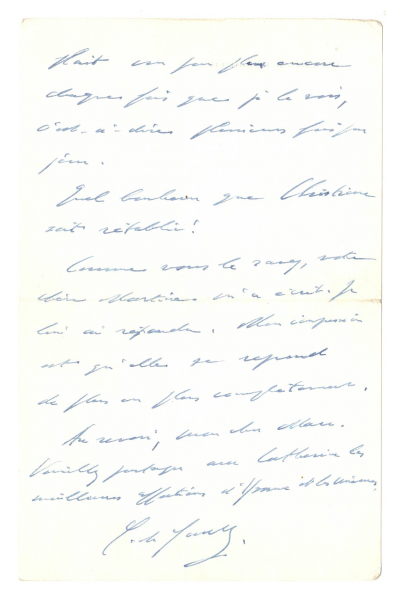 plaît un peu plus encore
chaque fois que je le vois,
c'est-à-dire plusieurs fois par
jour.
Quel bonheur que Christiane
soit rétablie !
Comme vous le savez, votre
chère Martine m'a écrit. Je
lui ai répondu. Mon impression
est qu'elle se reprend
de plus en plus complètement.
Au revoir, mon cher Marc.
Veuillez partager avec Catherine les
meilleures affections d'Yvonne et les miennes.
C. de Gaulle.